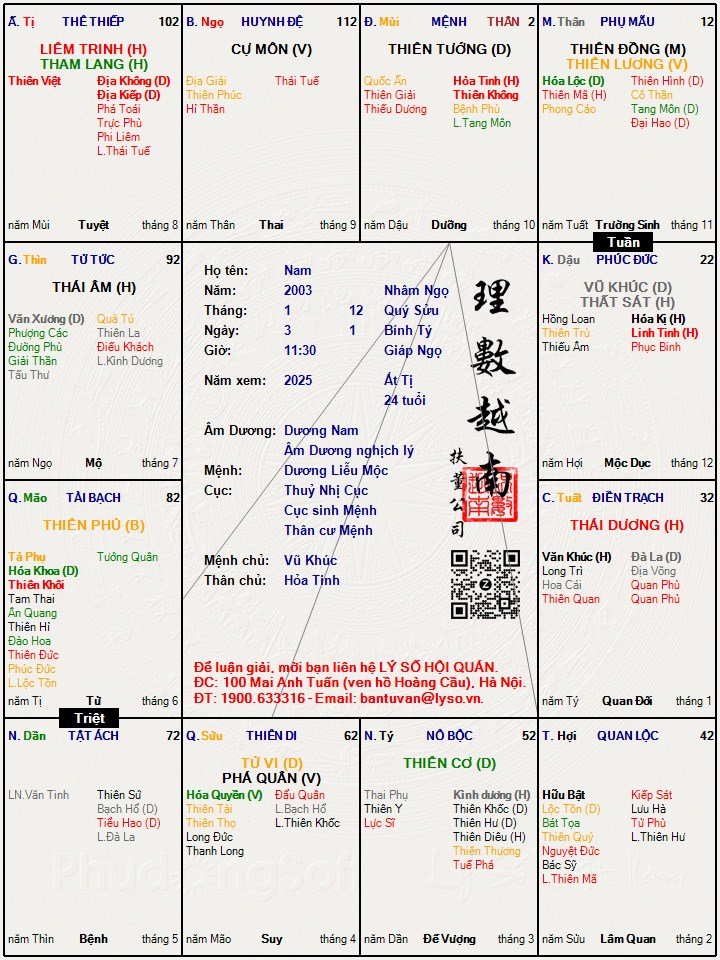 Ấ. Tị THÊ THIẾP 102
LIÊM TRINH (H)
THAM LANG (H)
Thiên Việt Địa Không (D)
Địa Kiếp (D)
Phá Toái
Trực Phù
Phi Liêm
L.Thái Tuế
năm Mùi Tuyệt tháng 8
B. Ngọ HUYNH ĐỆ 112
CỰ MÔN (V)
Địa Giải Thái Tuế
Thiên Phúc
Hỉ Thần
năm Thân Thai tháng 9
Đ. Mùi MỆNH THÂN 2
THIÊN TƯỚNG (D)
Quốc Ấn Hỏa Tinh (H)
Thiên Giải Thiên Không
Thiếu Dương Bệnh Phù
L.Tang Môn
năm Dậu Dưỡng tháng 10
M. Thân PHỤ MẪU 12
THIÊN ĐỒNG (M)
THIÊN LƯƠNG (V)
Hóa Lộc (D) Thiên Hình (D)
Thiên Mã (H) Cô Thần
Phong Cáo Tang Môn (D)
Đại Hao (D)
năm Tuất Trường Sinh tháng 11
Tuần
G. Thìn TỬ TỨC 92
THÁI ÂM (H)
Văn Xương (D) Quả Tú
Phượng Các Thiên La
Đường Phù Điếu Khách
Giải Thần L.Kình Dương
Tấu Thư
năm Ngọ Mộ tháng 7
Họ tên: Nam
Năm: 2003 Nhâm Ngọ
Tháng: 1 12 Quý Sửu
Ngày: 3 1 Bính Tý
Giờ: 11:30 Giáp Ngọ
Năm xem: 2025 Ất Tị
24 tuổi
Âm Dương: Dương Nam
Âm Dương nghịch lý
Mệnh: Dương Liễu Mộc
Cục: Thuỷ Nhị Cục
Cục sinh Mệnh
Thân cư Mệnh
Mệnh chủ: Vũ Khúc
Thân chủ: Hỏa Tinh
理數越南
扶董公司
Để luận giải, mời bạn liên hệ LÝ SỐ HỘI QUÁN.
ĐC: 100 Mai Anh Tuấn (ven hồ Hoàng Cầu), Hà Nội.
ĐT: 1900.633316 - Email: bantuvan@lyso.vn.
K. Dậu PHÚC ĐỨC 22
VŨ KHÚC (D)
THẤT SÁT (H)
Hồng Loan Hóa Kị (H)
Thiên Trù Linh Tinh (H)
Thiếu Âm Phục Binh
năm Hợi Mộc Dục tháng 12
Q. Mão TÀI BẠCH 82
THIÊN PHỦ (B)
Tả Phụ Tướng Quân
Hóa Khoa (D)
Thiên Khôi
Tam Thai
Ân Quang
Thiên Hỉ
Đào Hoa
Thiên Đức
Phúc Đức
L.Lộc Tồn
năm Tị Tử tháng 6
Triệt
C. Tuất ĐIỀN TRẠCH 32
THÁI DƯƠNG (H)
Văn Khúc (H) Đà La (D)
Long Trì Địa Võng
Hoa Cái Quan Phù
Thiên Quan Quan Phủ
năm Tý Quan Đới tháng 1
N. Dần TẬT ÁCH 72
LN.Văn Tinh Thiên Sứ
Bạch Hổ (D)
Tiểu Hao (D)
L.Đà La
năm Thìn Bệnh tháng 5
Q. Sửu THIÊN DI 62
TỬ VI (D)
PHÁ QUÂN (V)
Hóa Quyền (V) Đẩu Quân
Thiên Tài L.Bạch Hổ
Thiên Thọ L.Thiên Khốc
Long Đức
Thanh Long
năm Mão Suy tháng 4
N. Tý NÔ BỘC 52
THIÊN CƠ (D)
Thai Phụ Kình dương (H)
Thiên Y Thiên Khốc (D)
Lực Sĩ Thiên Hư (D)
Thiên Diêu (H)
Thiên Thương
Tuế Phá
năm Dần Đế Vượng tháng 3
T. Hợi QUAN LỘC 42
Hữu Bật Kiếp Sát
Lộc Tồn (D) Lưu Hà
Bát Tọa Tử Phù
Thiên Quý L.Thiên Hư
Nguyệt Đức
Bác Sỹ
L.Thiên Mã
năm Sửu Lâm Quan tháng 2